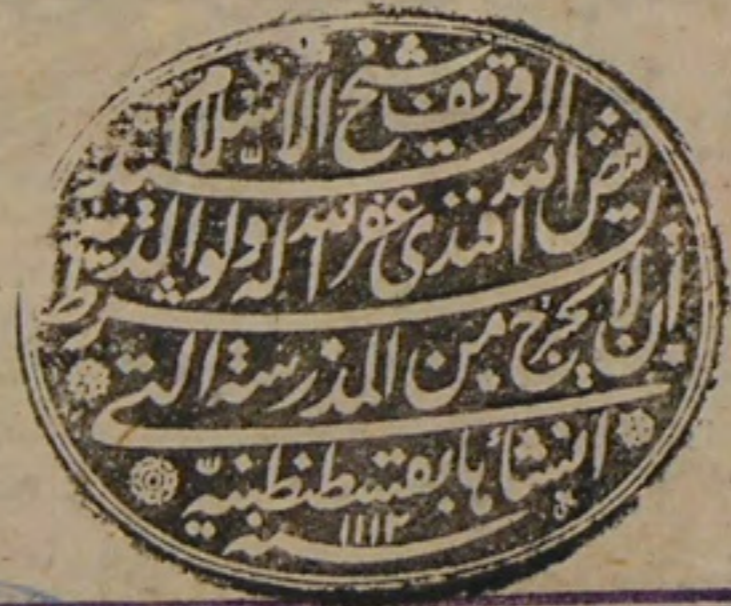 وقف شيخ الاسلام السيد
فيض الله افندى غفر الله له ولوالديه
بشرط ان لا يخرج من المدرسة التى
انشأها بقسطنطينيّة
سنه ١١١٢